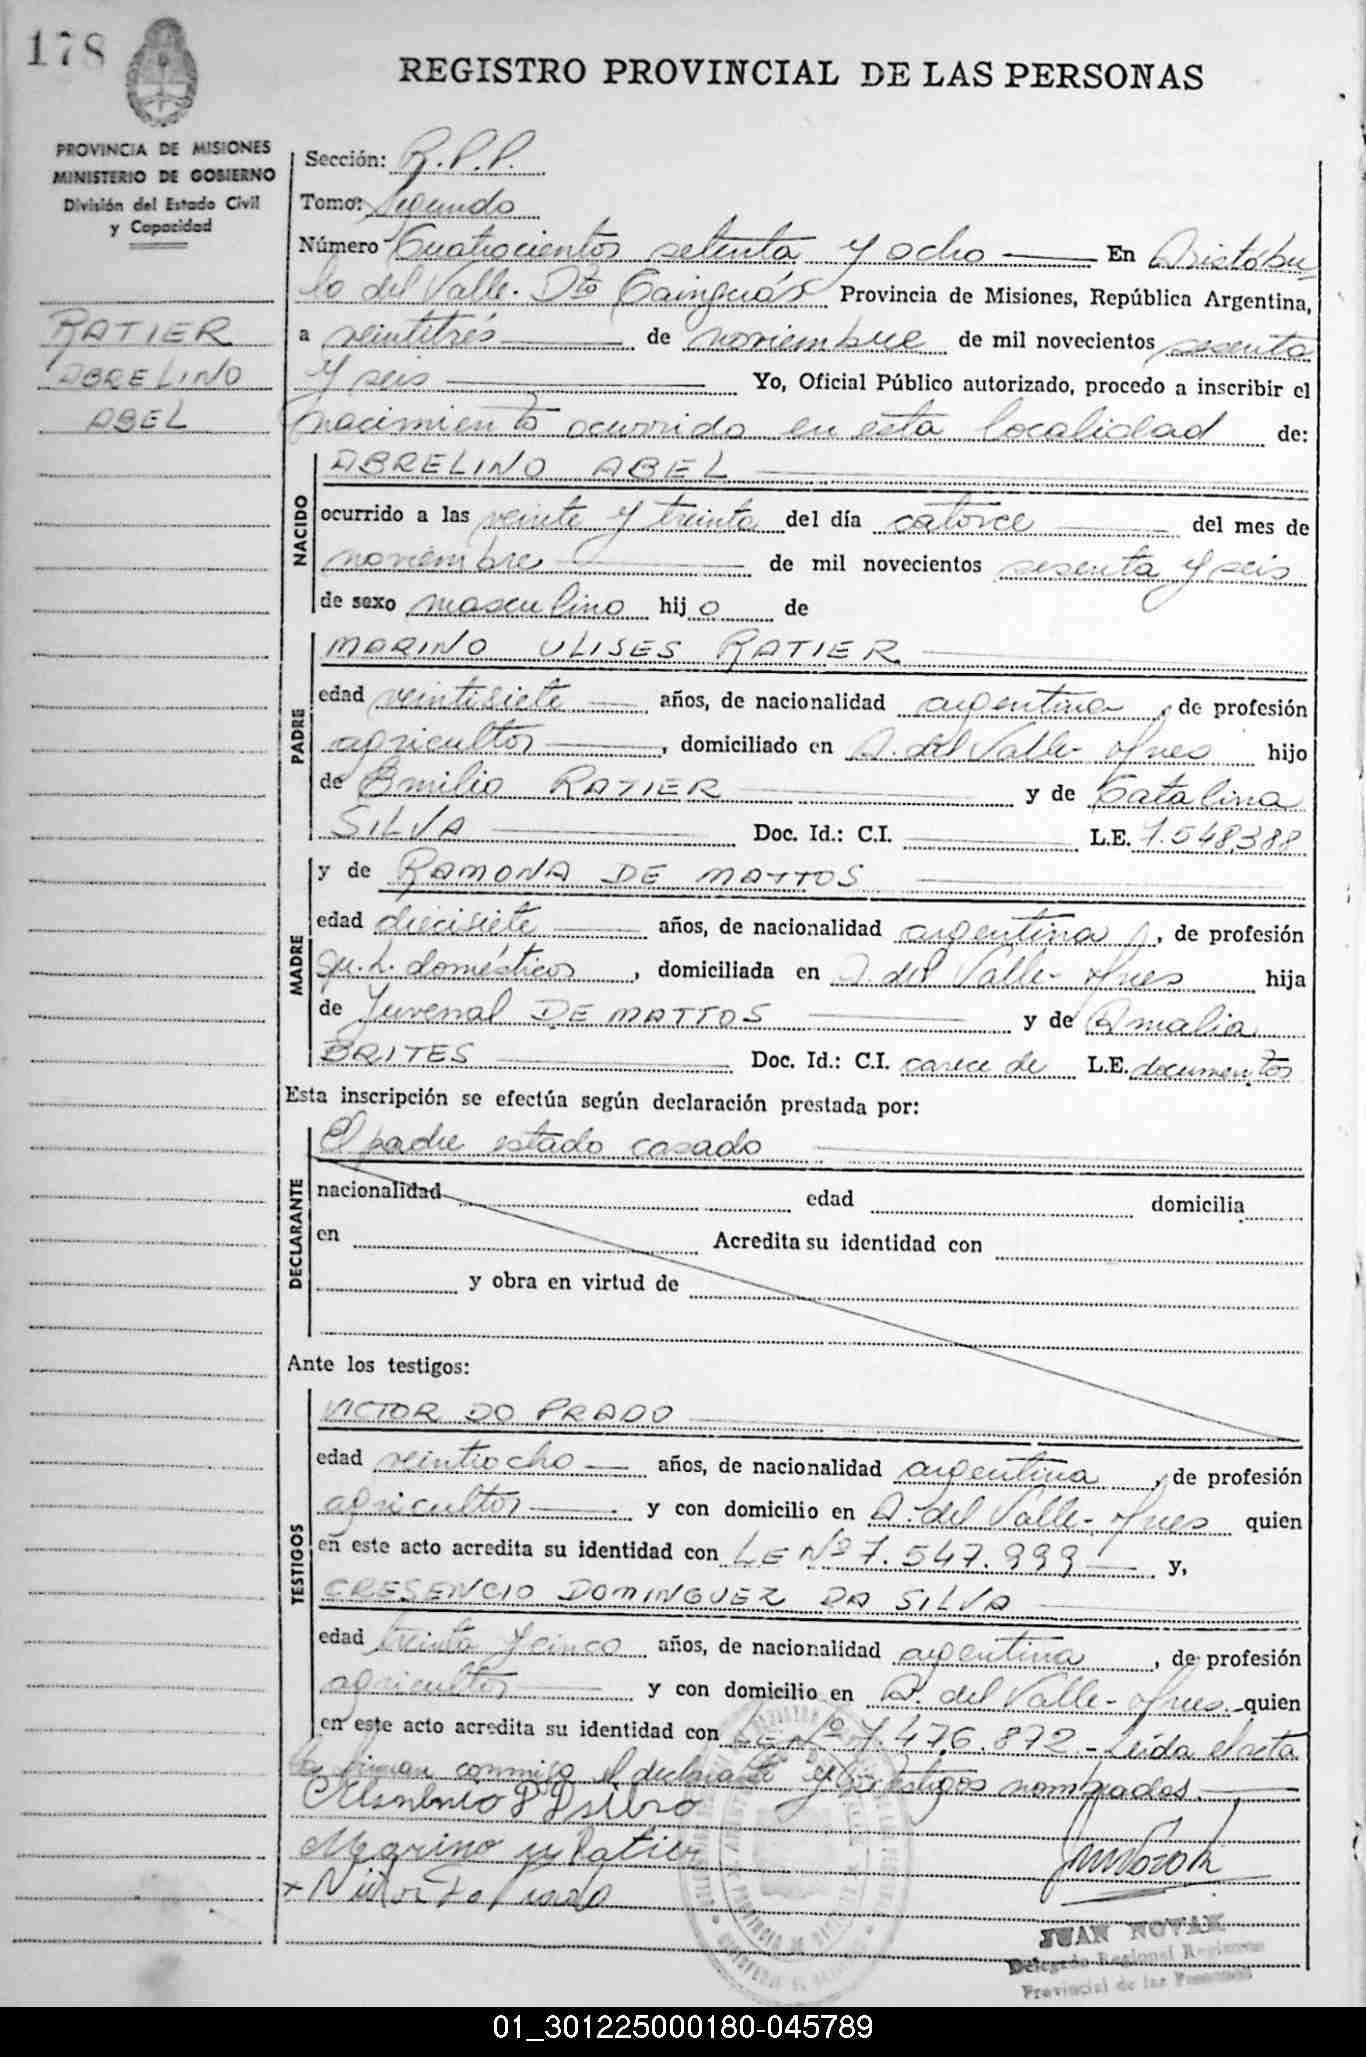 178
REGISTRO PROVINCIAL DE LAS PERSONAS
PROVINCIA DE MISIONES
MINISTERIO DE GOBIERNO
División del Estado Civil
y Capacidad
RATIER
ABRELINO
ABEL
Sección: R.P.P.
Tomo: Segundo
Número Cuatrocientos setenta y ocho En Aristóbu
lo del Valle. Dto Cainguás Provincia de Misiones, República Argentina,
a veintitrés de noviembre de mil novecientos sesenta
y seis Yo, Oficial Público autorizado, procedo a inscribir el
nacimiento ocurrido en esta localidad de:
NACIDO
ABRELINO ABEL
ocurrido a las veinte y treinta del día catorce del mes de
noviembre de mil novecientos sesenta y seis
de sexo masculino hijo de
PADRE
MARINO ULISES RATIER
edad veintisiete años, de nacionalidad argentina, de profesión
agricultor, domiciliado en A. del Valle- Mnes hijo
de Emilio RATIER y de Catalina
SILVA Doc. Id.: C.I. L.E. 7.548.388
MADRE
y de RAMONA DE MATTOS
edad diecisiete años, de nacionalidad argentina, de profesión
qu.h. domésticos, domiciliada en A. del Valle- Mnes hija
de Juvenal DE MATTOS y de Amalia
BRITES Doc. Id.: C.I. carece de L.E. documentos
Esta inscripción se efectúa según declaración prestada por:
DECLARANTE
El padre estado casado
nacionalidad edad domicilia
en Acredita su identidad con
y obra en virtud de
Ante los testigos:
TESTIGOS
VICTOR DO PRADO
edad veintiocho años, de nacionalidad argentina, de profesión
agricultor y con domicilio en A. del Valle- Mnes quien
en este acto acredita su identidad con LE Nº 7.547.999 y,
CRESENCIO DOMINGUEZ DA SILVA
edad treinta y cinco años, de nacionalidad argentina, de profesión
agricultor y con domicilio en A. del Valle- Mnes. quien
en este acto acredita su identidad con LE Nº 7.476.872.- Leída el acta
la firman conmigo el declarante y los testigos nombrados.
Marino U Ratier
JUAN NOVAK
Delegado Regional Registro
Provincial de las Personas
01_301225000180-045789